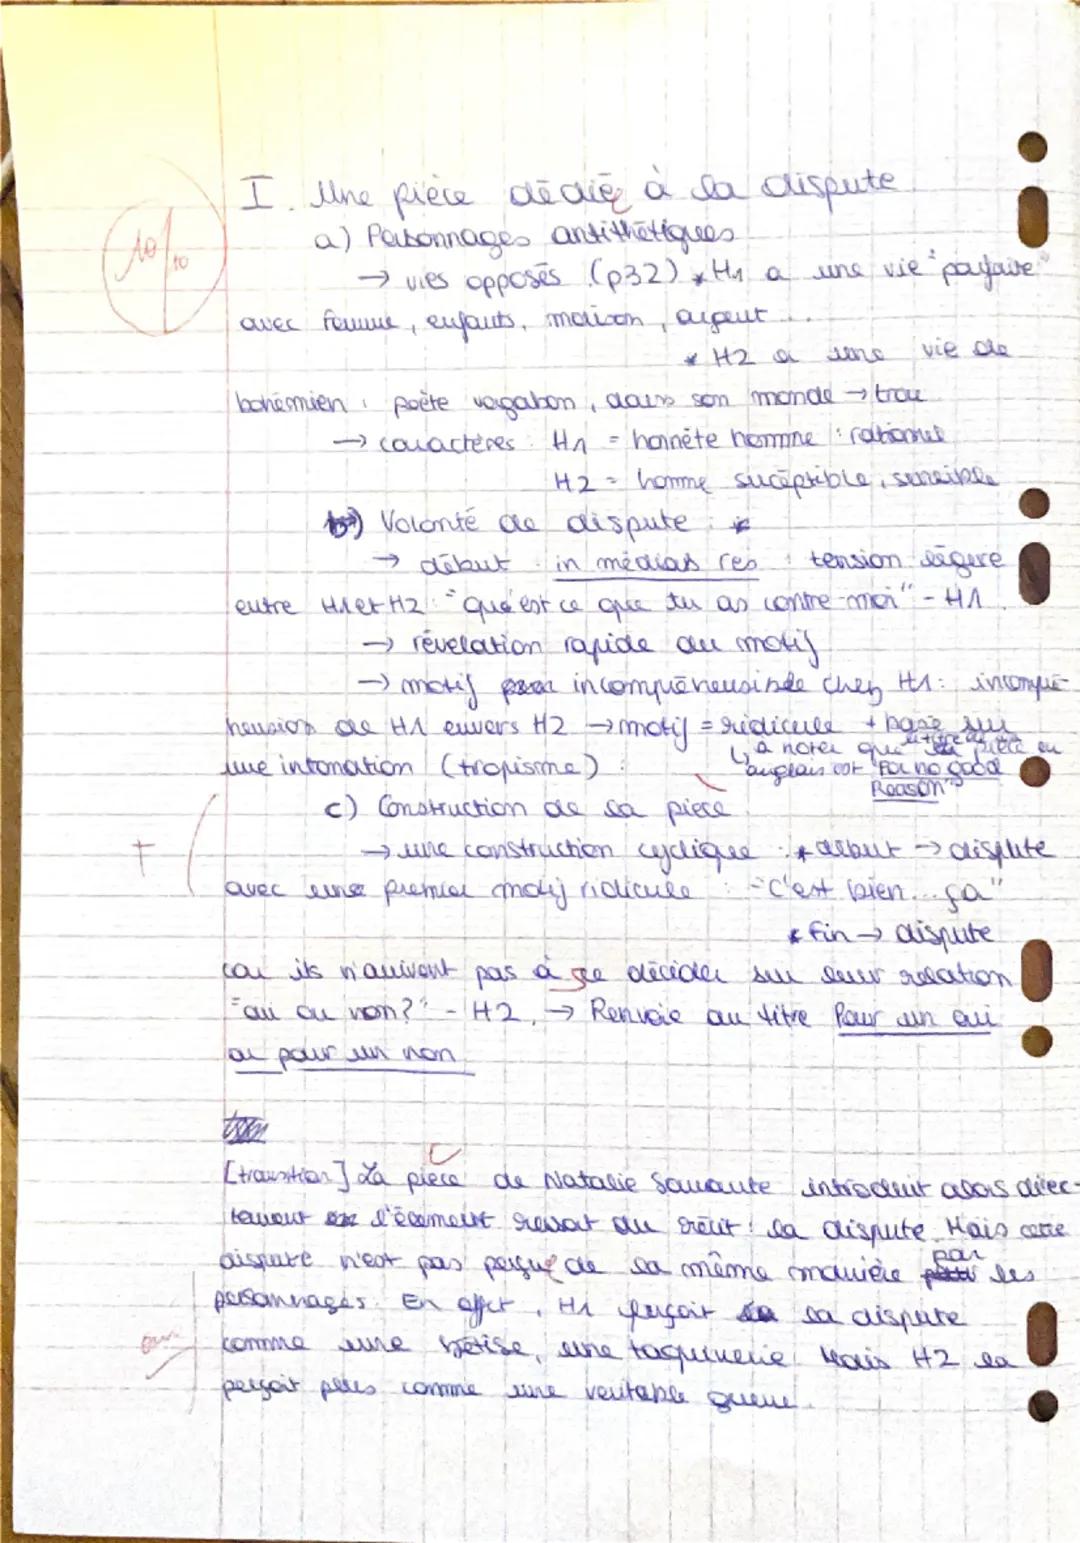 10/10
I. Une pièce dédiée à la dispute
a) Personnages antithétiques
→ vies opposés (p32) * H1 a une vie "parfaite"
avec femme, enfants, maison, argent...
* H2 a une vie de
bohémien : poète vagabon, dans son monde → trou
→ caractères : H1 = honnête homme : rationnel
H2 = homme suceptible, sensible
b) Volonté de dispute :
→ début in médias res : tension légere
entre H1 et H2 : "Qu'est ce que tu as contre moi" - H1.
→ révelation rapide du motif
→ motif incompréhensible chez H1 : incompré-
hension de H1 envers H2 → motif = ridicule + basé sur
une intonation (tropisme).
↳ à noter que le titre de la pièce en
anglais est "For no good
Reason"
c) Construction de la pièce
+
→ une construction cyclique : * début → dispute
avec une premier motif ridicule : "C'est bien... ça"
* fin → dispute
car ils n'arrivent pas à se décider sur leur relation
"oui ou non?" - H2. → Renvoie au titre Pour un oui
ou pour un non
[transtion] La pièce de Natalie Sarraute introduit alors direc-
tement l'élément du récit : la dispute. Mais cette
dispute n'est pas perçue de la même manière par les
personnages. En effet, H1 perçoit la dispute
comme une bêtise, une taquinerie. Mais H2 la
perçoit plus comme une veritable guerre.